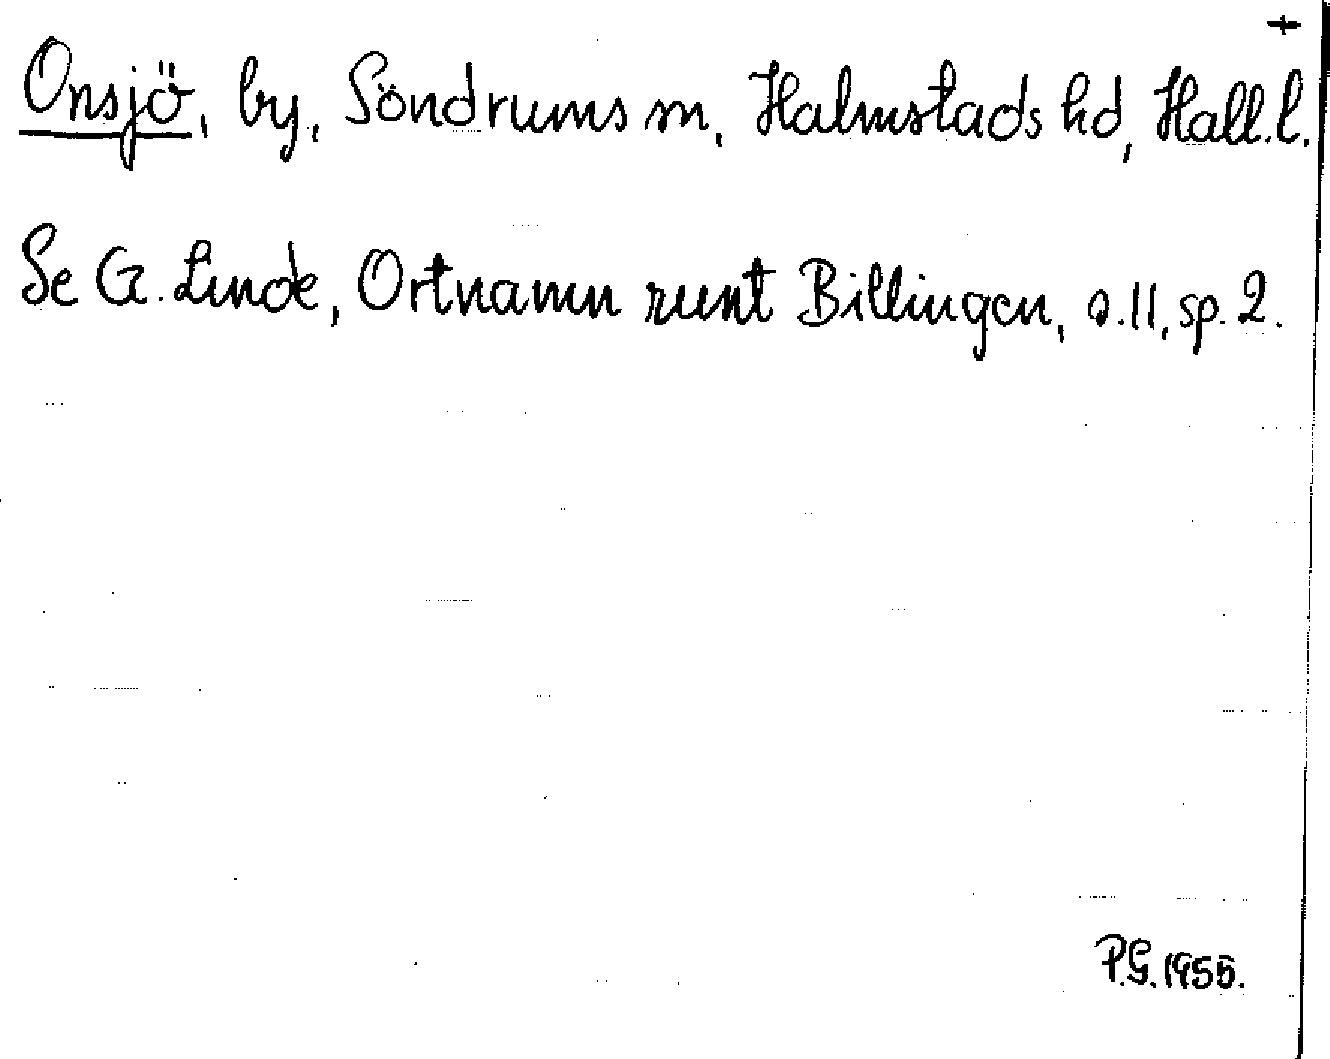 Onsjö, by, Söndrums sn, Halmstads hd, Hall. l.
Se G. Linde, Ortnamn runt Billingen, s. 11, sp. 2.
P.G. 1955.